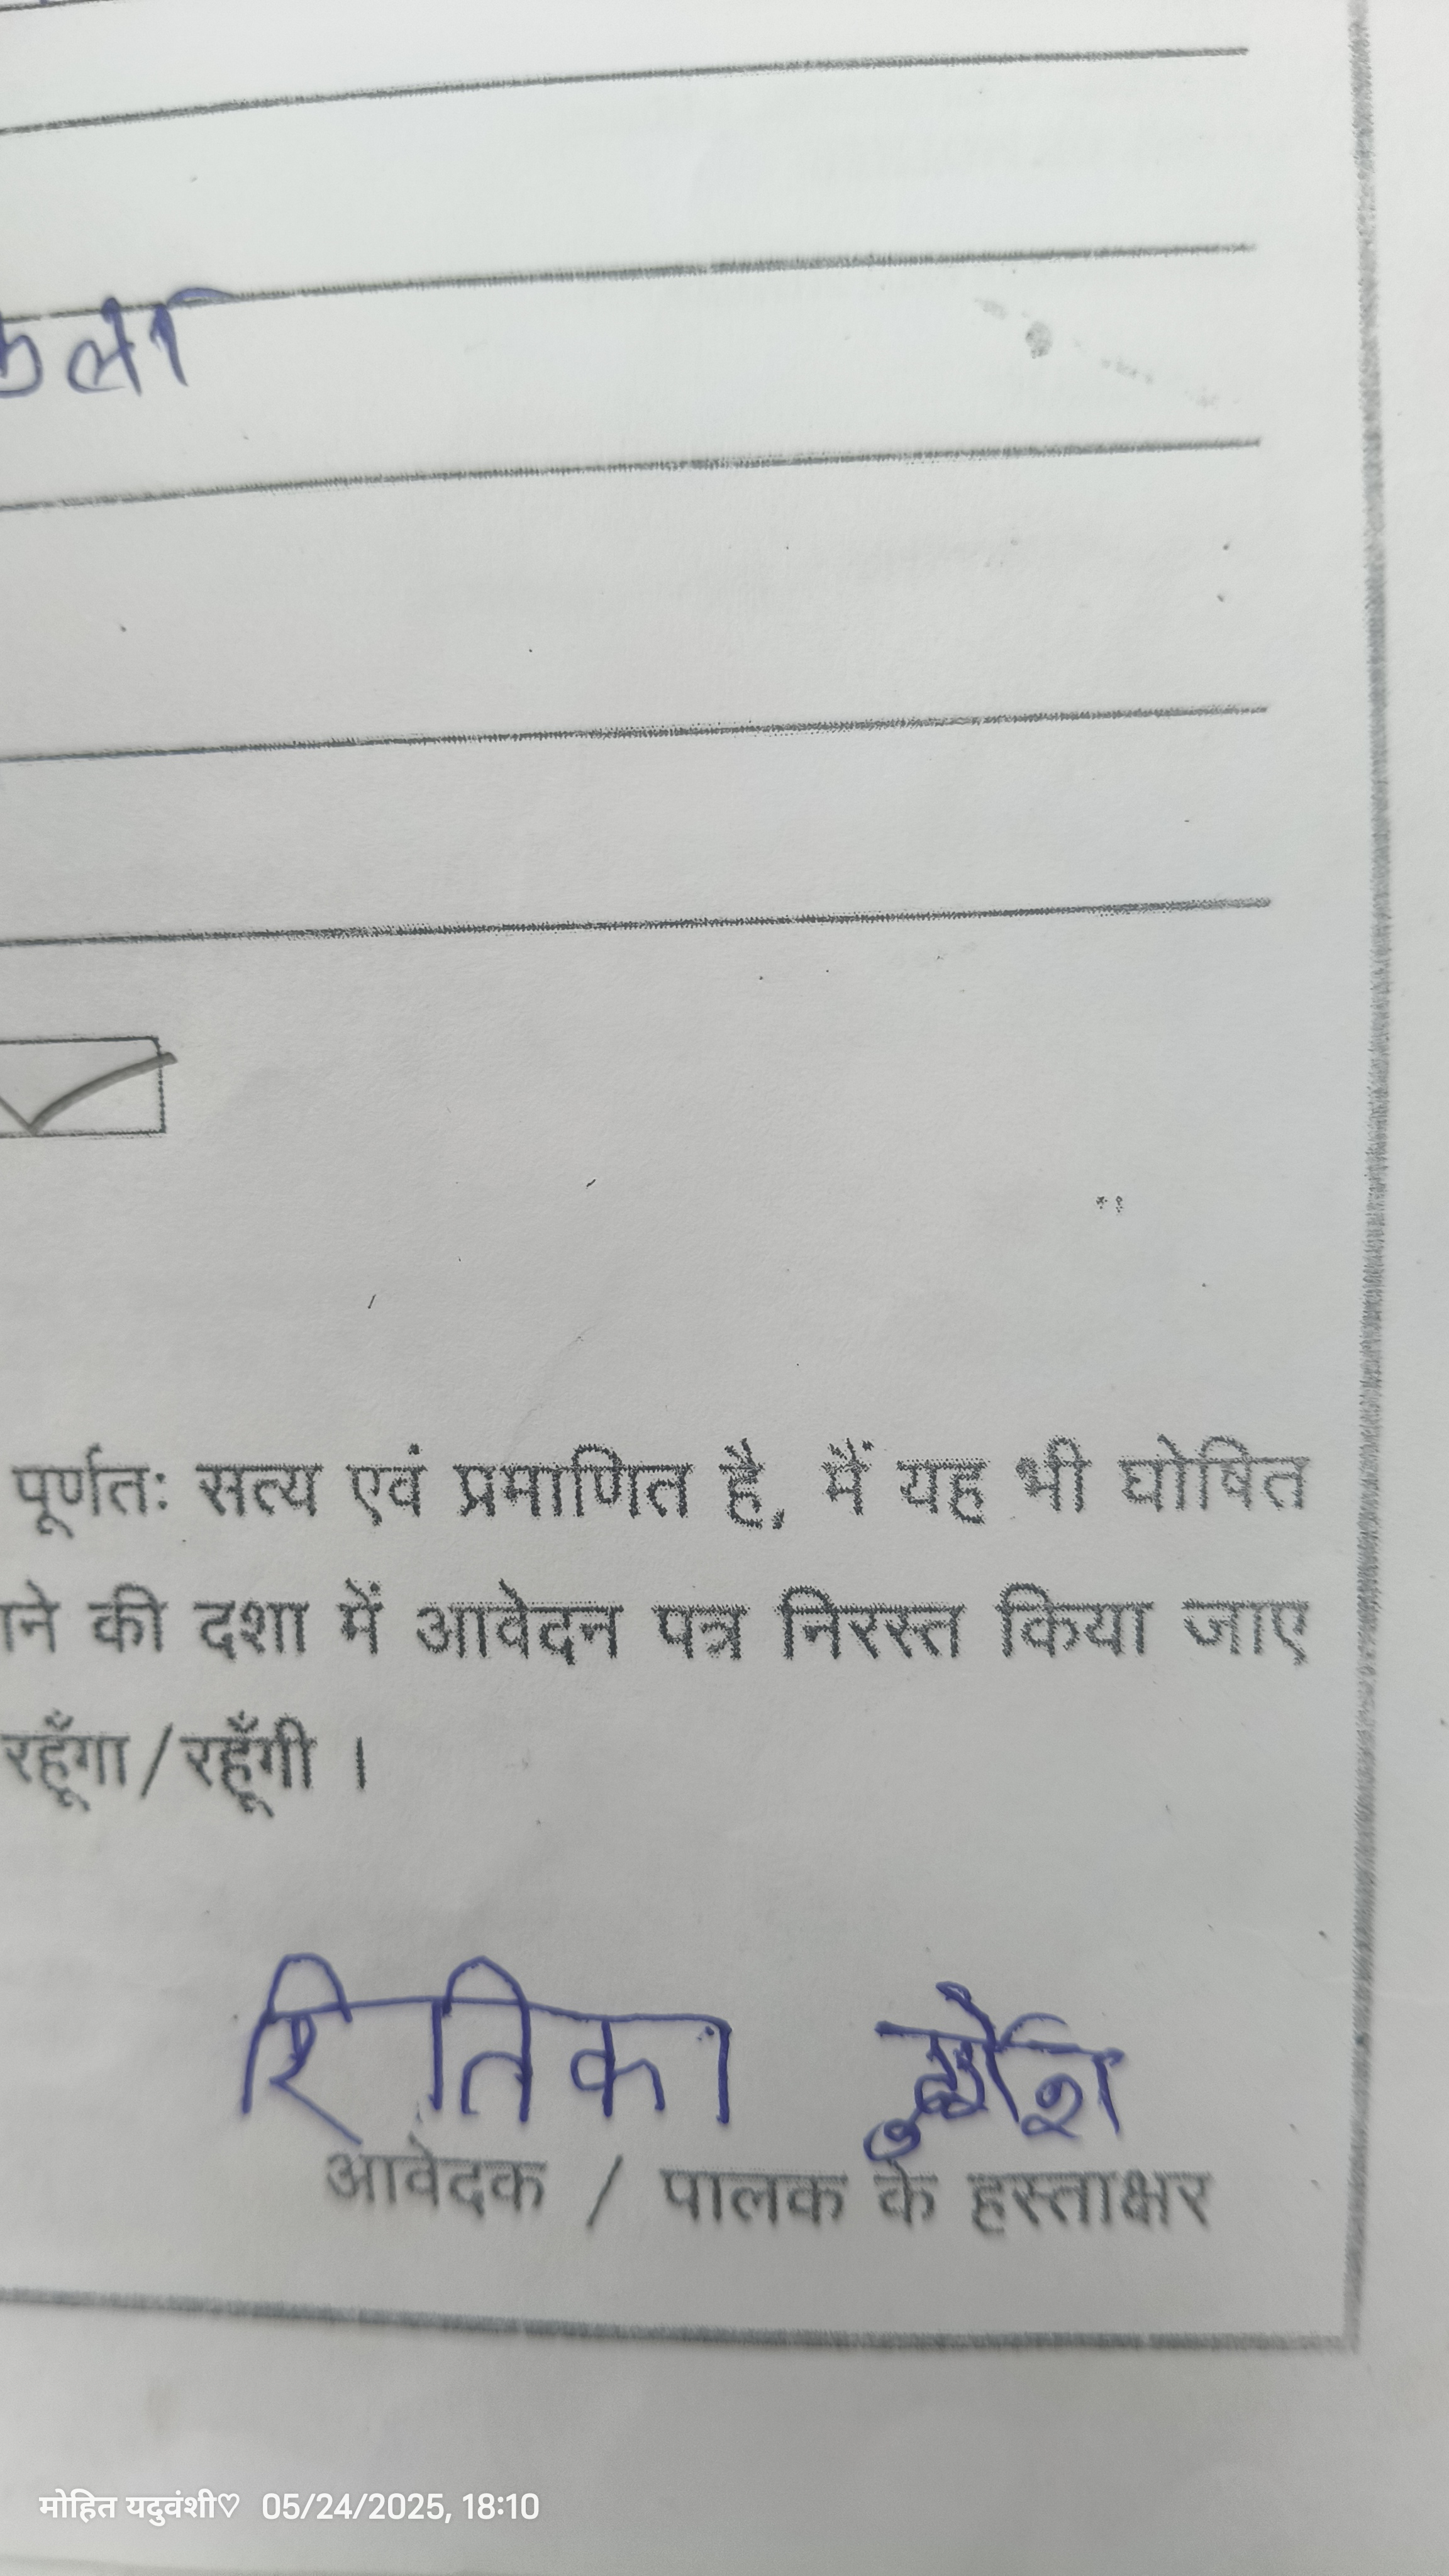 पूर्णतः सत्य एवं प्रमाणित है, मैं यह भी घोषित
की दशा में आवेदन पत्र निरस्त किया जाए
रहूँगा/रहूँगी ।
रितिका
आवेदक / पालक के हस्ताक्षर
मोहित यदुवंशी♡ 05/24/2025, 18:10